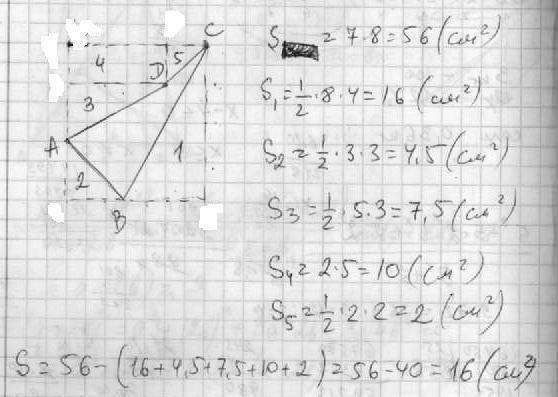 C
4
5
D
3
A
1
2
B
S = 7·8 = 56 (см²)
S₁ = 1/2 · 8 · 4 = 16 (см²)
S₂ = 1/2 · 3 · 3 = 4,5 (см²)
S₃ = 1/2 · 5 · 3 = 7,5 (см²)
S₄ = 2 · 5 = 10 (см²)
S₅ = 1/2 · 2 · 2 = 2 (см²)
S = 56 - (16 + 4,5 + 7,5 + 10 + 2) = 56 - 40 = 16 (см²)